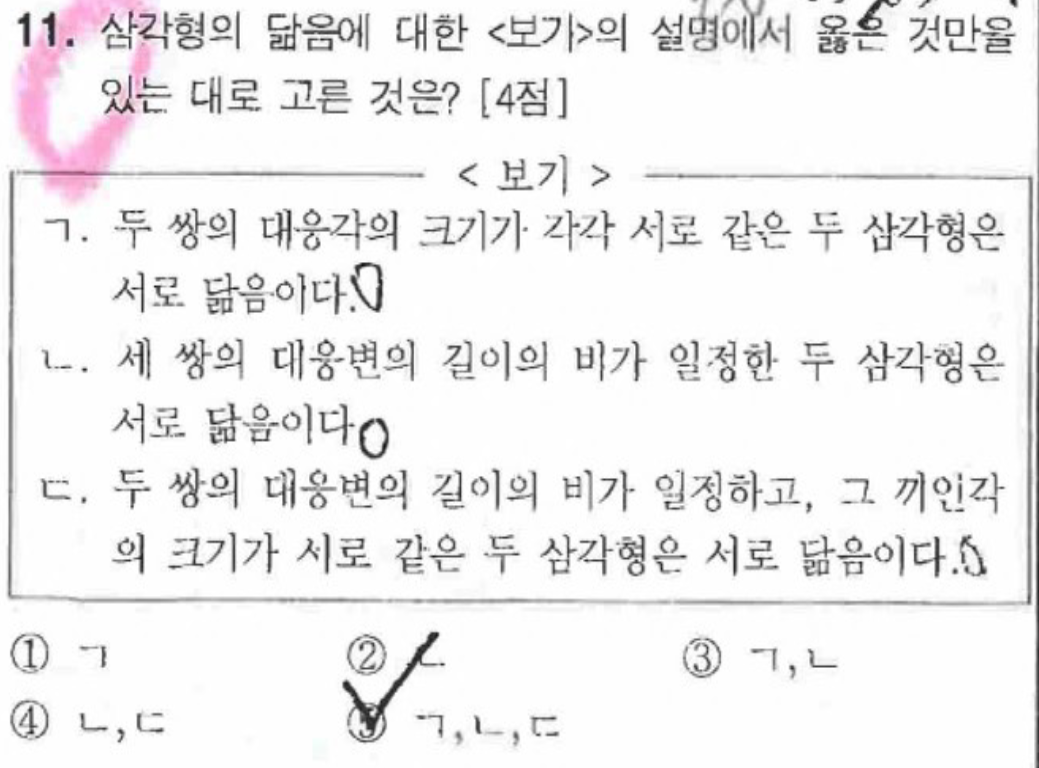 11. 삼각형의 닮음에 대한 <보기>의 설명에서 옳은 것만을
있는 대로 고른 것은? [4점]
< 보기 >
ㄱ. 두 쌍의 대응각의 크기가 각각 서로 같은 두 삼각형은
서로 닮음이다.
ㄴ. 세 쌍의 대응변의 길이의 비가 일정한 두 삼각형은
서로 닮음이다
ㄷ. 두 쌍의 대응변의 길이의 비가 일정하고, 그 끼인각
의 크기가 서로 같은 두 삼각형은 서로 닮음이다.
① ㄱ ② ㄴ ③ ㄱ,ㄴ
④ ㄴ,ㄷ ⑤ ㄱ,ㄴ,ㄷ